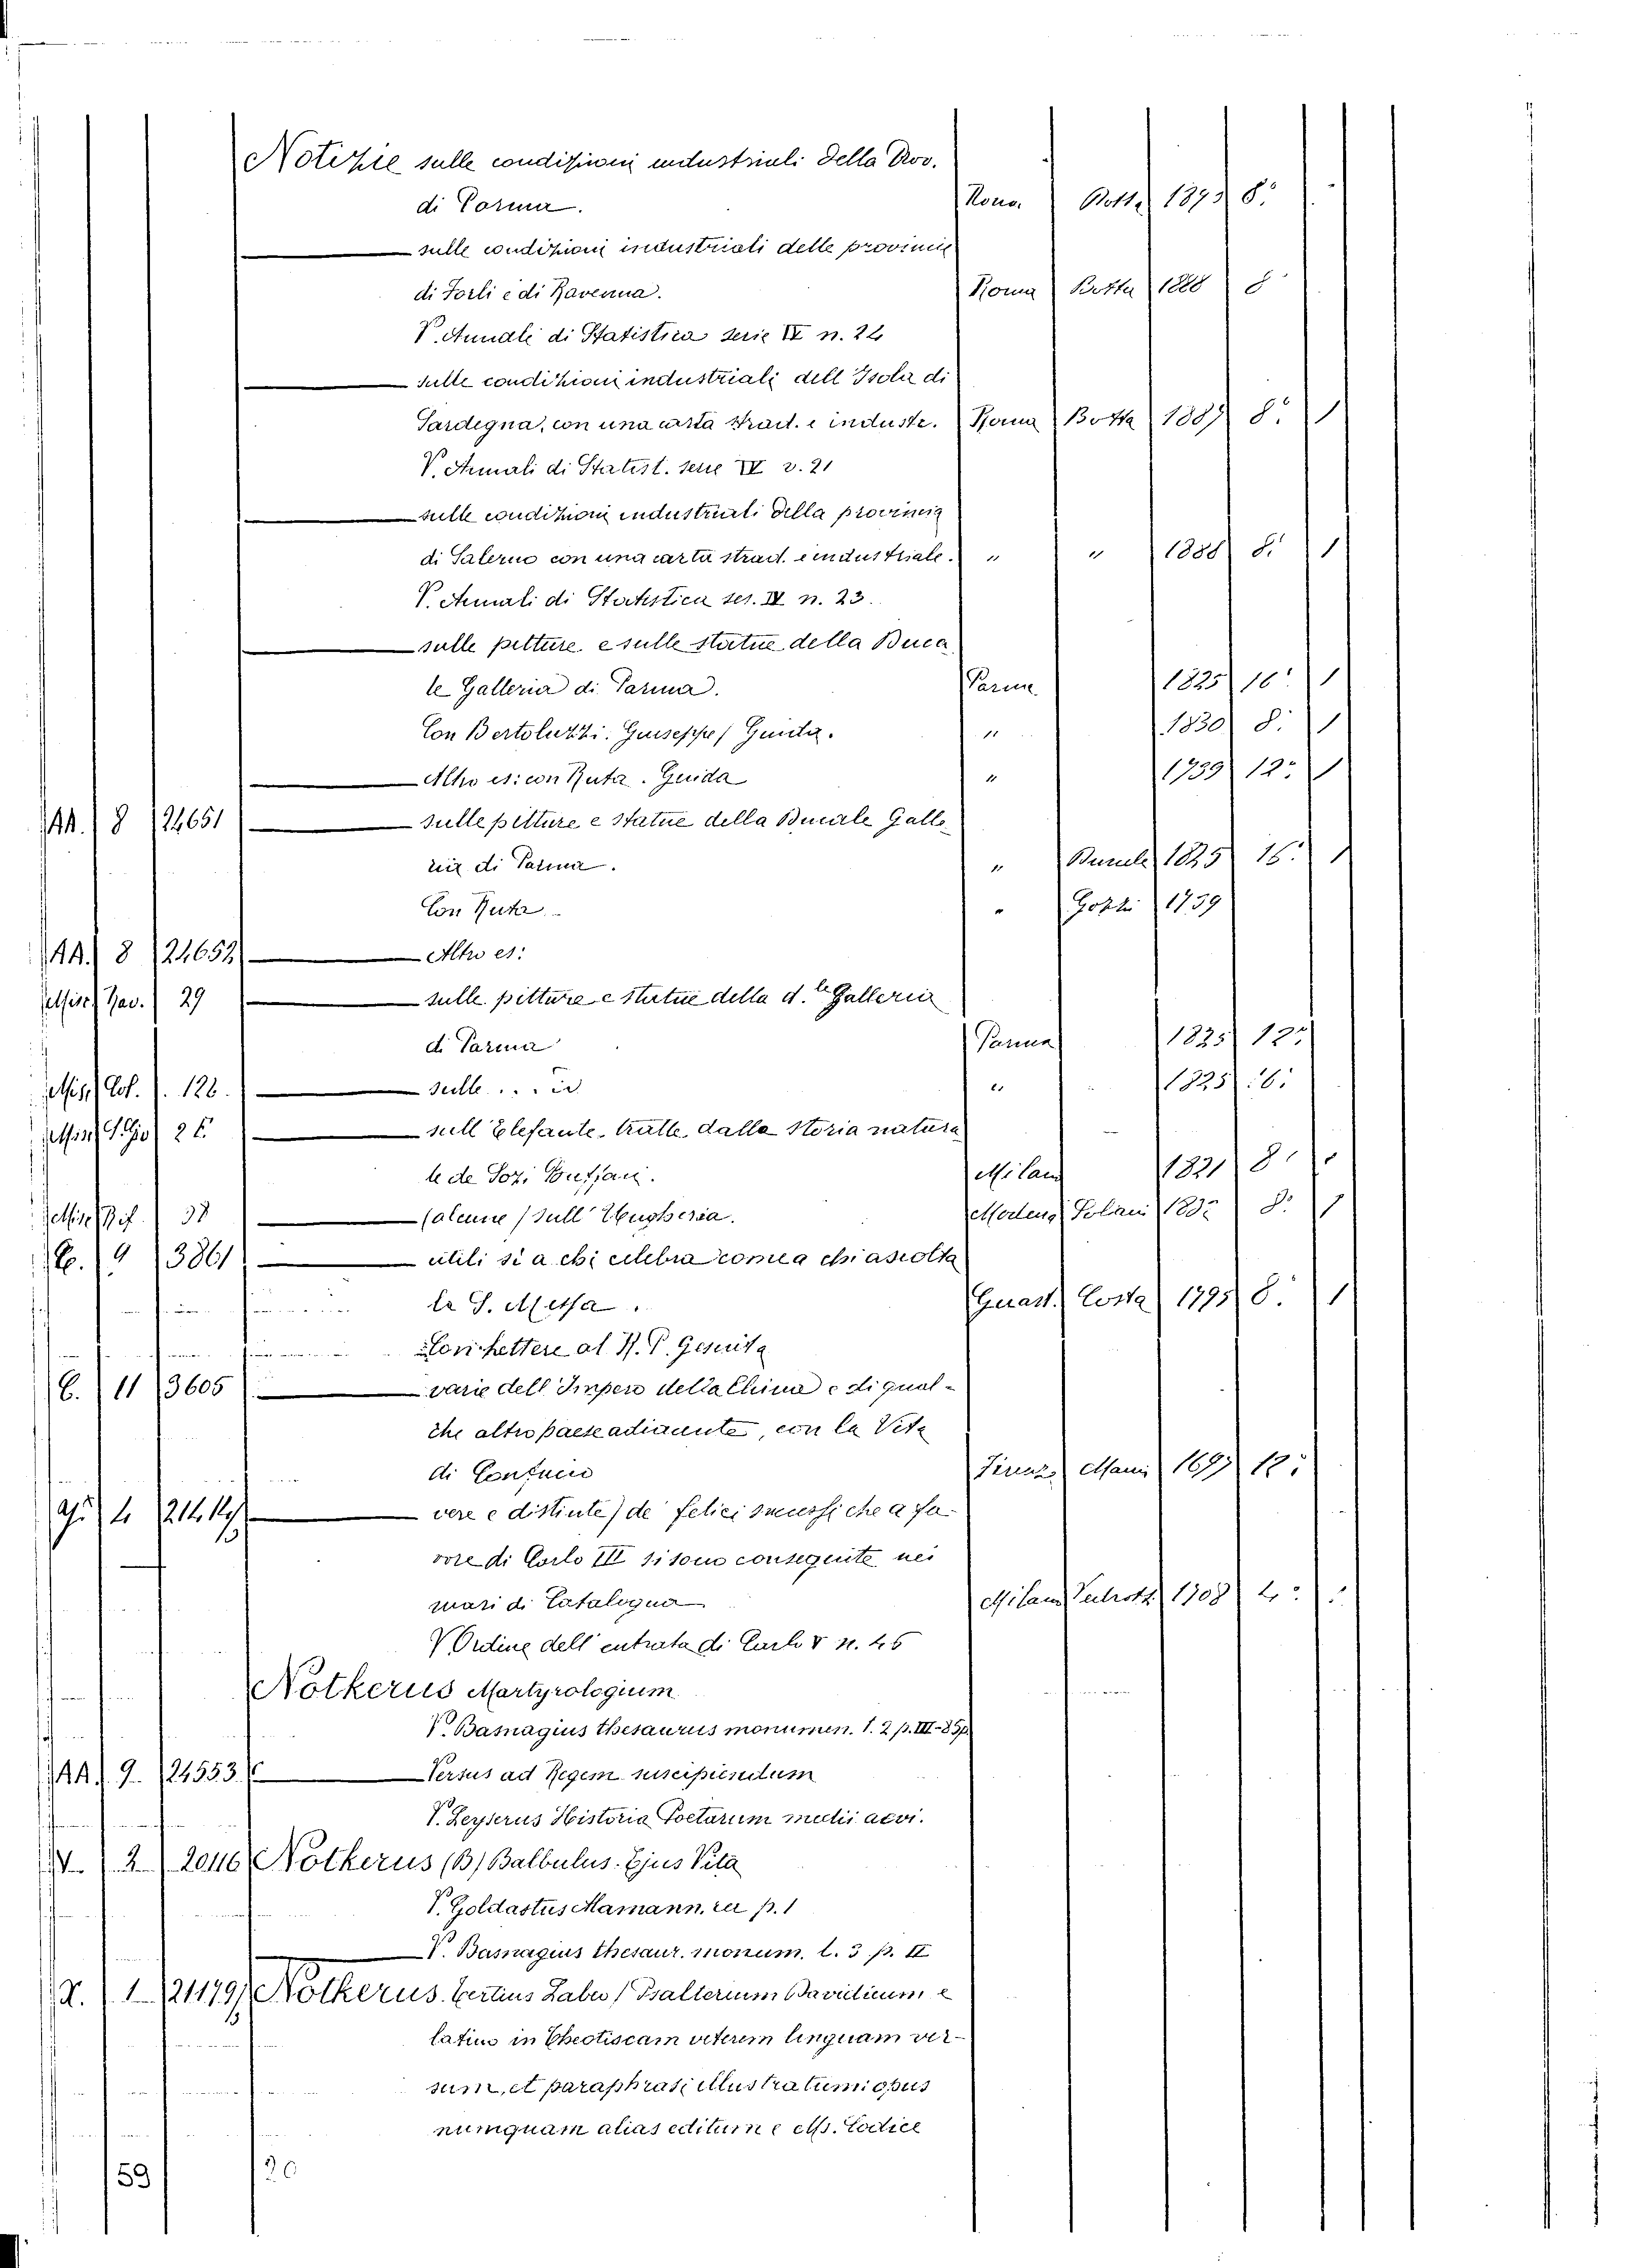 Notizie sulle condizioni industriali della Prov.
di Parma. Roma Botta 1893 8.°
sulle condizioni industriali delle provincie
di Forli e di Ravenna. Roma Botta 1888 8
V. Annali di Statistica serie IV n. 22
sulle condizioni industriali dell Isola di
Sardegna, con una carta strad. e industr. Roma Botta 1887 8.° 1
V. Annali di Statist. serie IV v. 21
sulle condizioni industriali della provincia
di Salerno con una carta strad. e industriale. " " 1888 8. 1
V. Annali di Statistica ser. IV n. 23.
sulle pitture e sulle statue della Duca
le Galleria di Parma. Parma 1825 16° 1
Con Bertoluzzi. Giuseppe / Guida. " 1830 8. 1
Altro es: con Ruta. Guida " 1739 12° 1
AA. 8 24651 sulle pitture e statue della Ducale Galle
ria di Parma. " Ducale 1825 16. 1
Con Ruta. " Gozzi 1739
AA. 8 24652 Altro es:
Misc. Gav. 29 sulle pitture e statue della d.le Galleria
di Parma Parma 1825 12°
Misc. Col. 126. sulle ... id " 1825 16:
Misc. 26 sull Elefante, tratte dalla storia natura
le de Soz. Buffani. Milano 1821 8
Misc. Rif. 38 (alcune / sull' Ungheria. Modena Soliani 1832 8. 1
C. 9 3861 utili si a chi celebra come a chi ascolta
la S. Messa. Guast. Costa 1795 8. 1
Con lettere al R. P. Gesuita
C. 11 3605 varie dell Impero della China e di qual-
che altro paese adiacente, con la Vita
di Confucio Firenze Manni 1697 12:
4 vere e distinte / de felici successi che a fa-
vore di Carlo III si sono conseguite nei
mari di Catalogna Milano 1708 4:
V Ordine dell' entrata di Carlo V n. 45
Notkerus Martyrologium
V. Basnagius thesaurus monumen. t. 2 p. III-89
AA. 9. 24553 Versus ad Regem suscipiendum
V. Leyserus Historia Poetarum medii aevi.
V. 2 20116 Notkerus (B) Balbulus. Ejus Vita
V. Goldastus Alamann. rer p. 1
V. Basnagius thesaur. monum. t. 3 p. II
X. 1 21179 Notkerus. tertius Labeo / Psalterium Davidicum e
latino in Theotiscam veterem linguam ver-
sum, et paraphrasi illustratum: opus
numquam alias editum e Ms. Codice
59 20